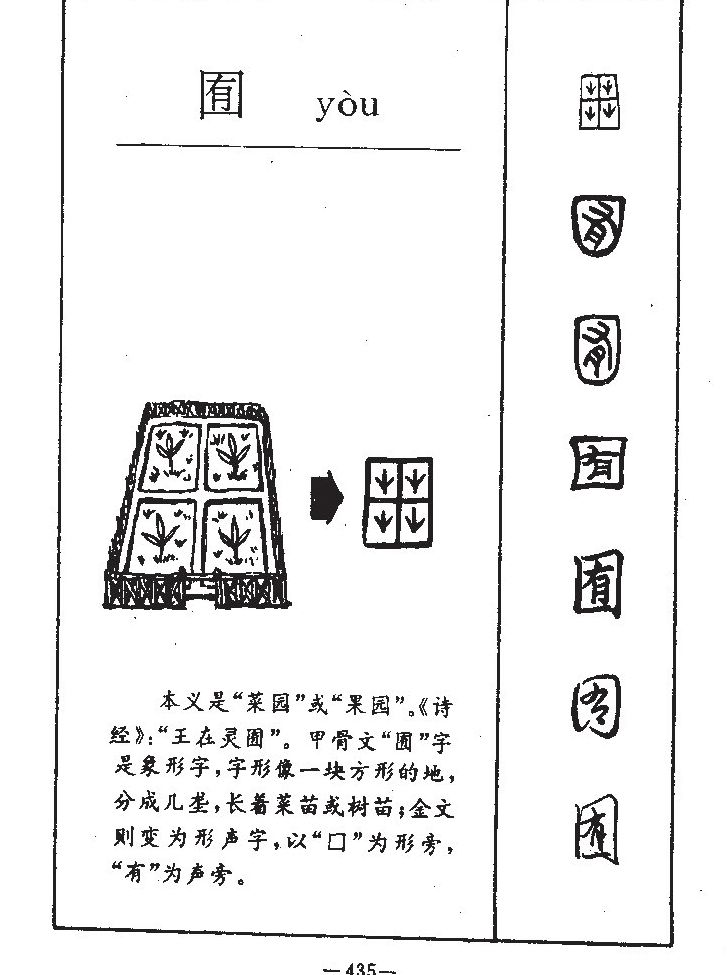 囿 yòu
本义是“菜园”或“果园”。《诗
经》:“王在灵囿”。甲骨文“囿”字
是象形字,字形像一块方形的地,
分成几垄,长着菜苗或树苗;金文
则变为形声字,以“囗”为形旁,
“有”为声旁。
囿
囿
囿
囿
囿
囿
囿
—435—